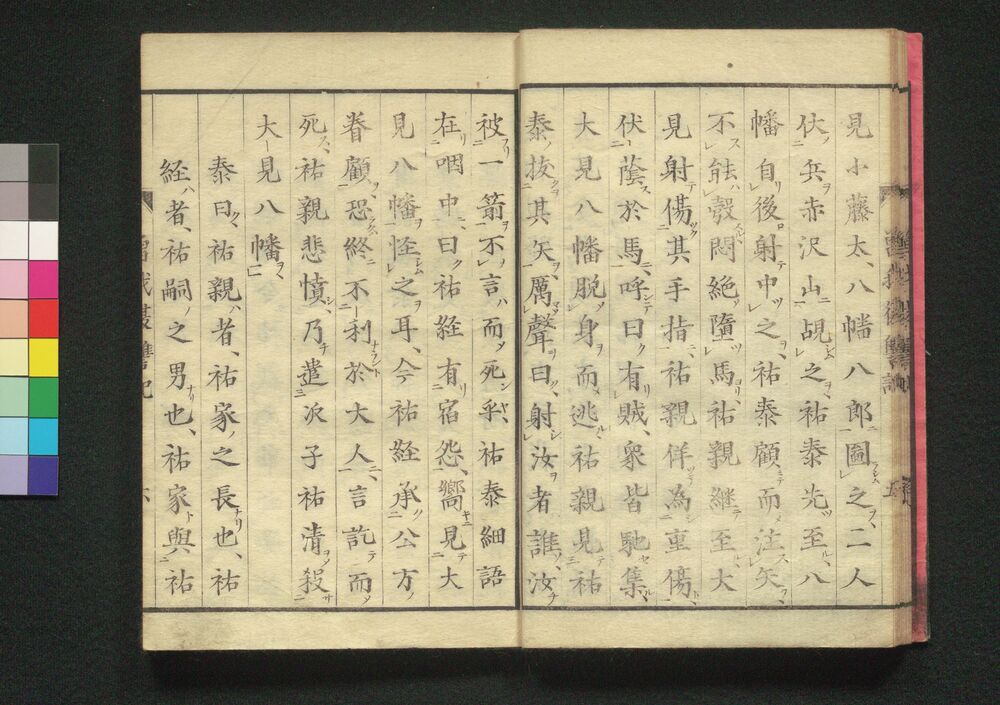 見小藤太、八幡八郎圖之、二人
伏兵赤沢山覘之、祐泰先至、八
幡自後射中之、祐泰顧而注矢、
不能彀悶絶墮馬祐親継至大
見射傷其手指、祐親佯為重傷、
伏蔭於馬、呼曰有賊、衆皆馳集、
大見八幡脱身而逃祐親見祐
泰抜其矢、厲聲曰、射汝者誰、汝
被一箭不言而死乎、祐泰細語
在咽中、曰祐経有宿怨、嚮見大
見八幡恠之耳、今祐経承公方
眷顧、恐終不利於大人、言訖而
死、祐親悲憤、乃遣次子祐清殺
大見八幡
泰曰、祐親者、祐家之長也、祐
経者、祐嗣之男也、祐家與祐